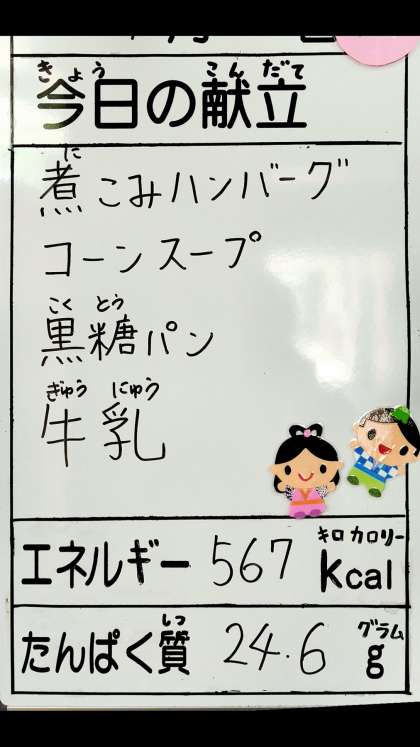 きょう こんだて
今日の献立
に
煮こみハンバーグ
コーンスープ
こく とう
黒糖パン
ぎゅう にゅう
牛乳
キロカロリー
エネルギー 567 kcal
しつ グラム
たんぱく質 24.6 g